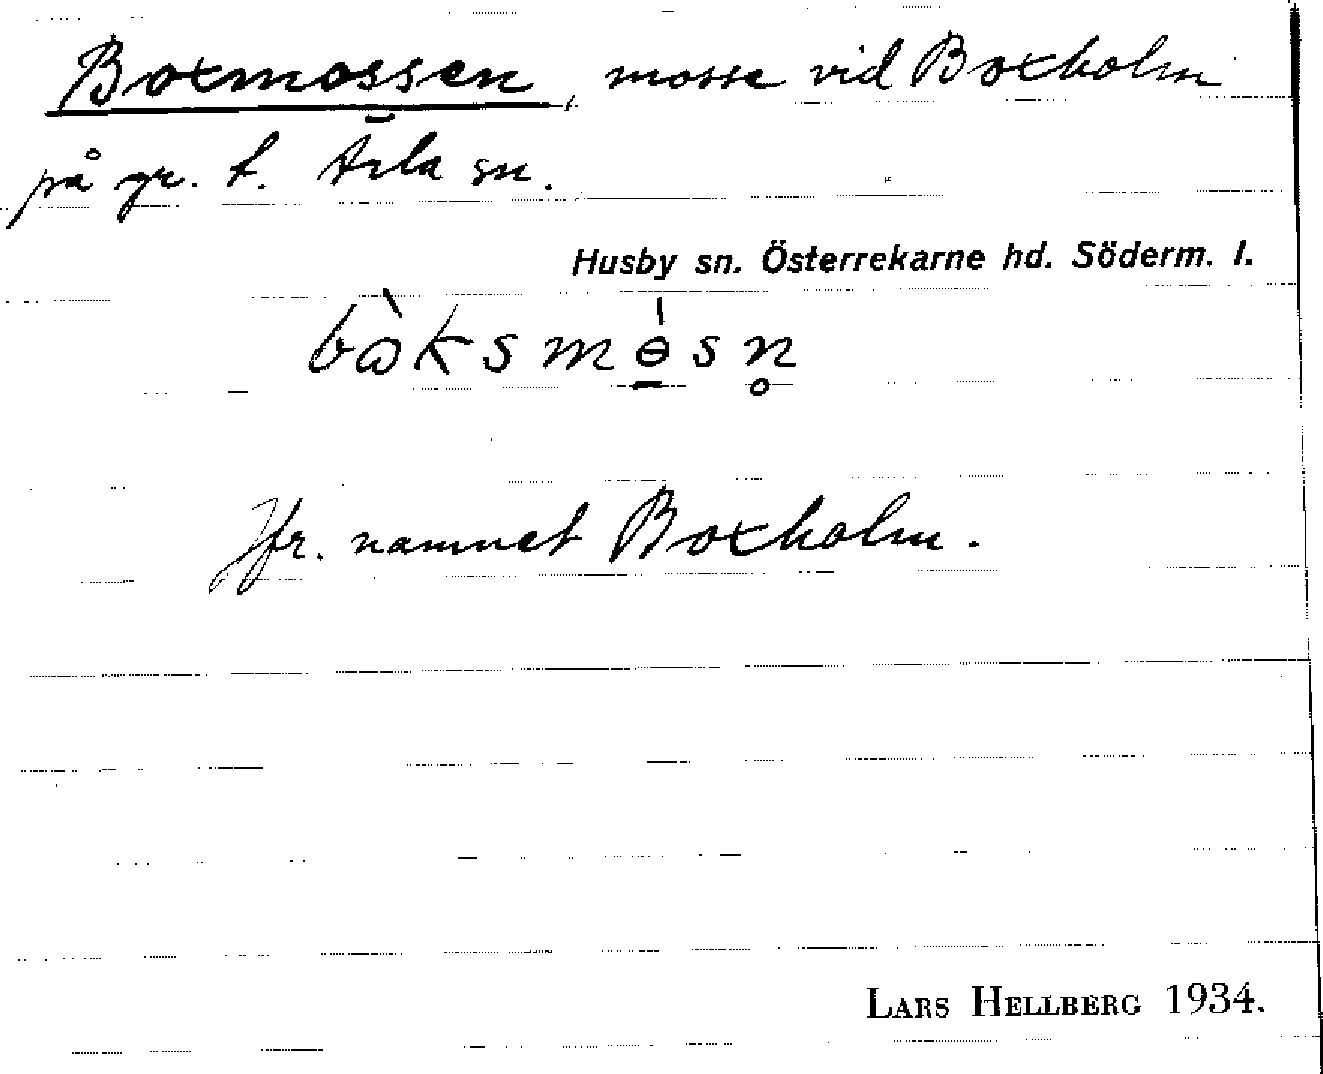 Boxmossen, mosse vid Boxholm
på gr. t. Ärla sn.
Husby sn. Österrekarne hd. Söderm. l.
bòksmósn̥
Jfr. namnet Boxholm.
LARS HELLBERG 1934.